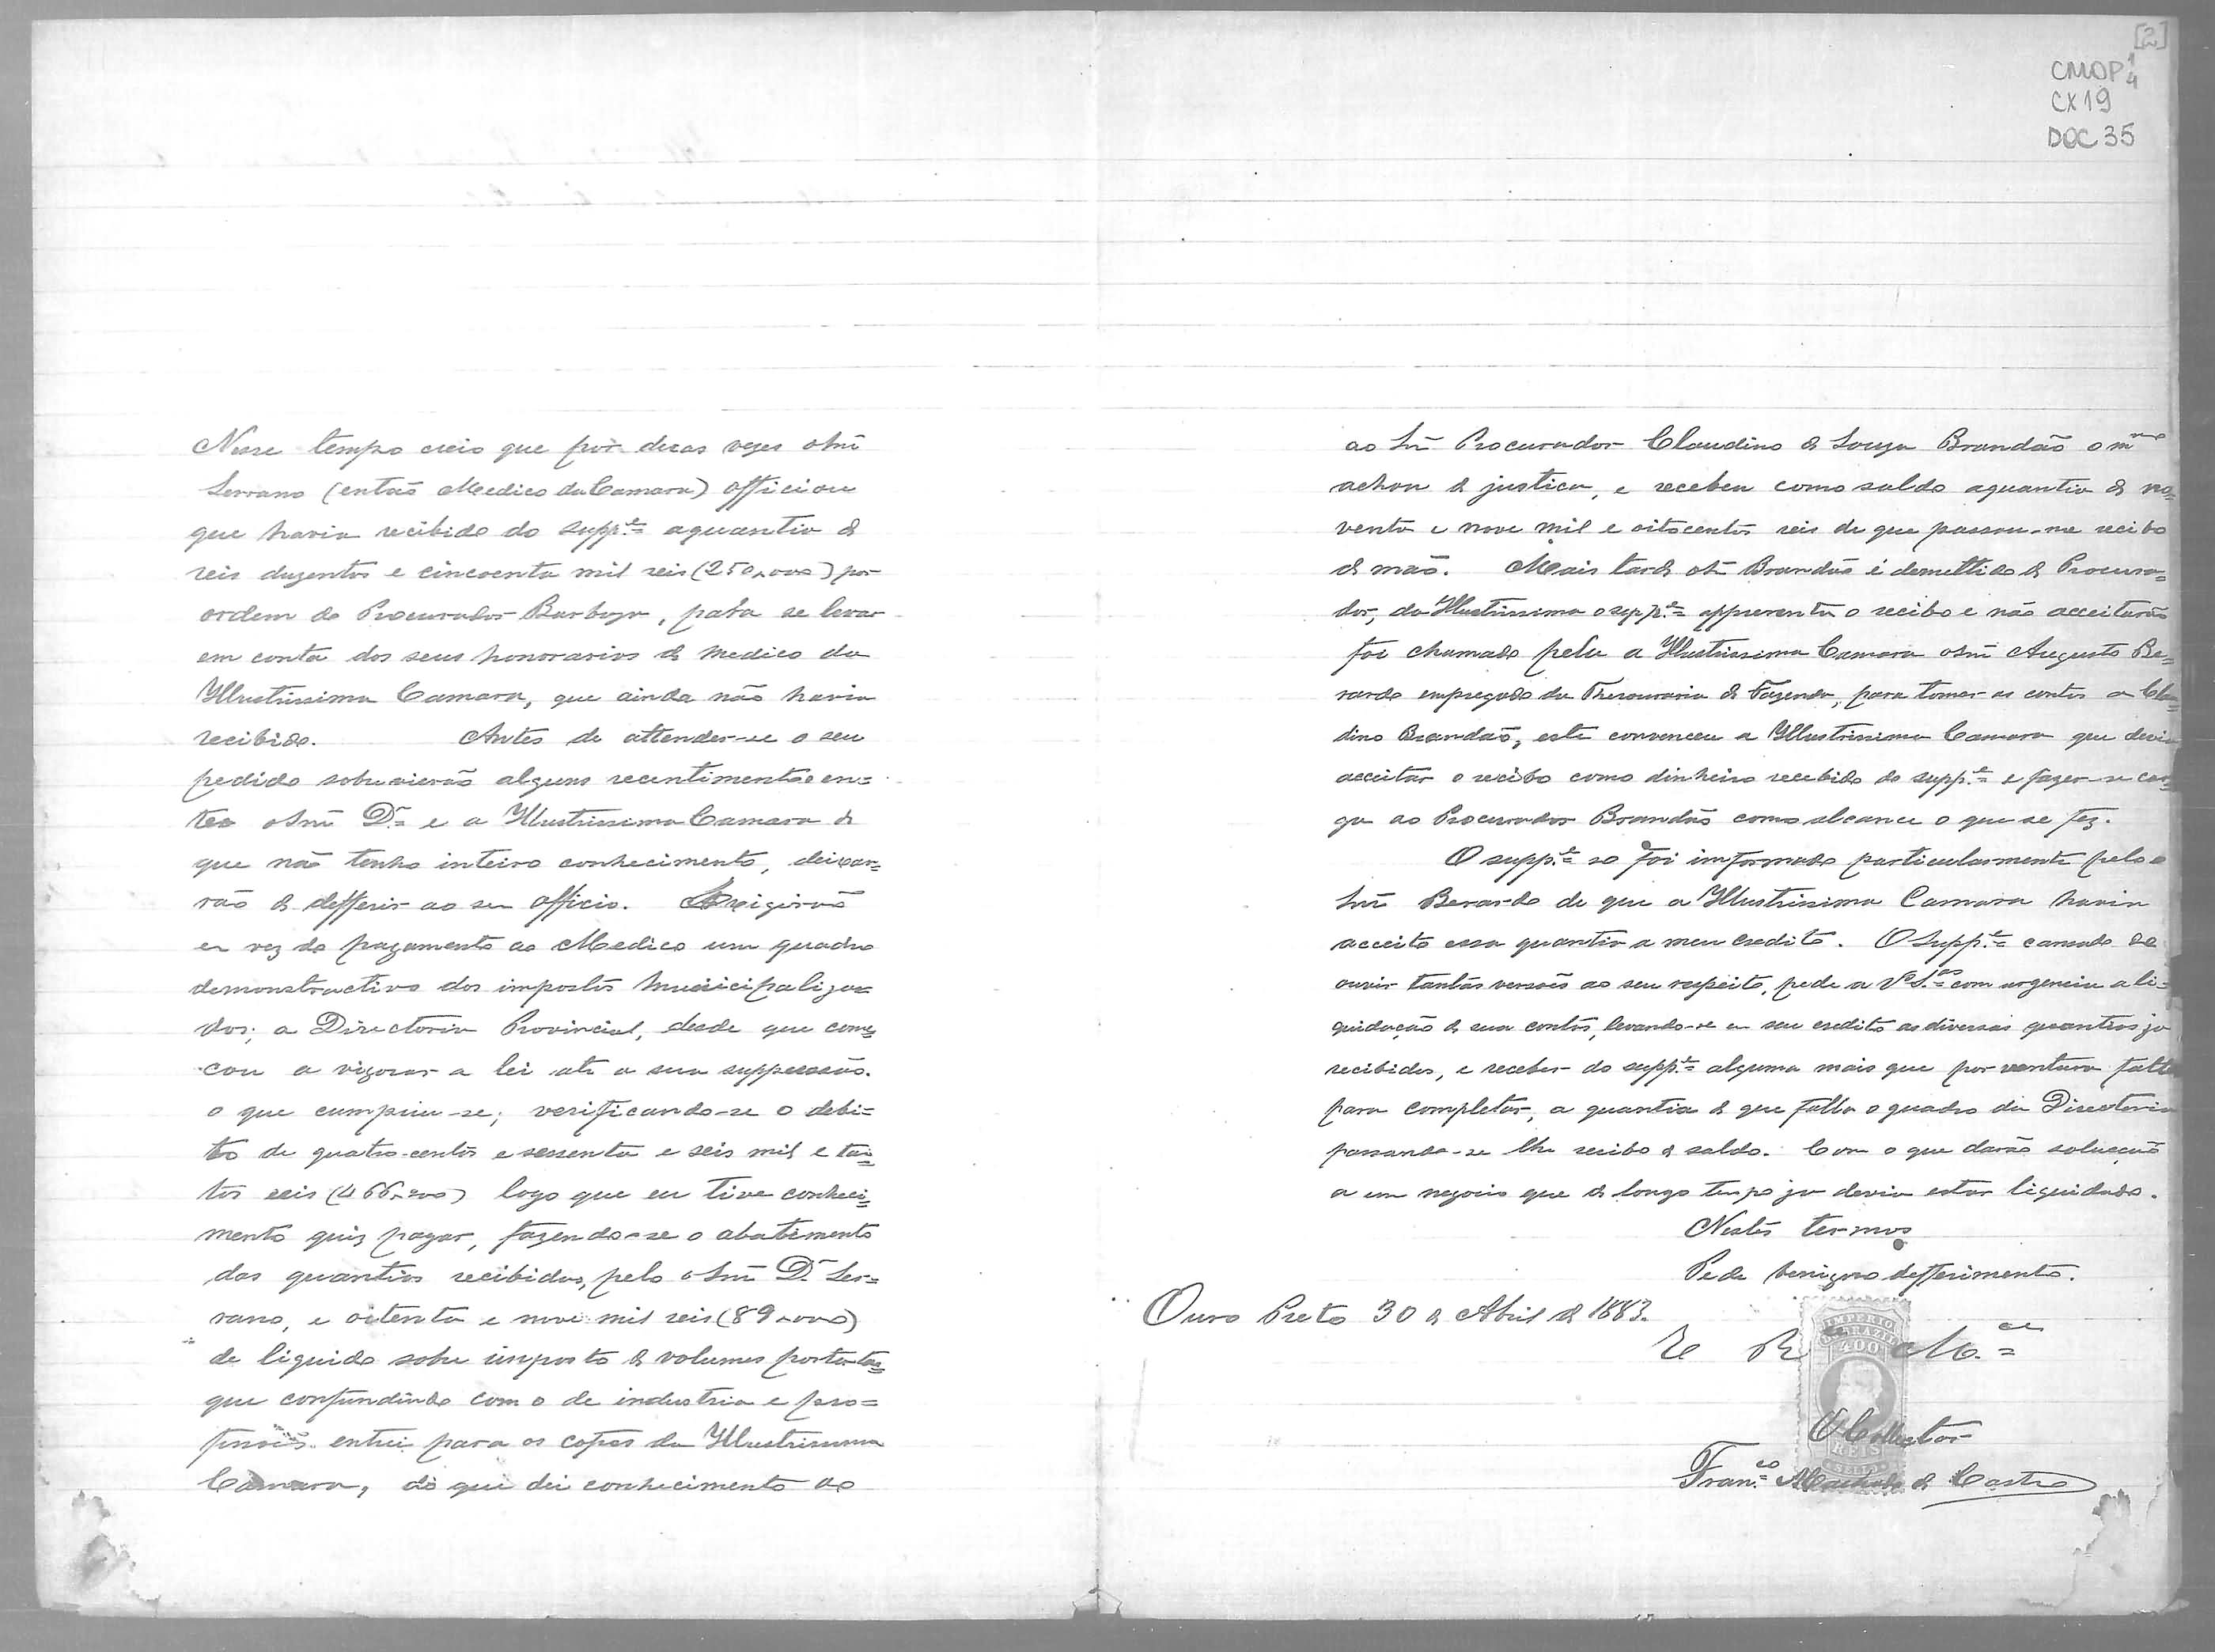 Nesse tempo creio que por duas vezes o Snr
Serrano (então Medico da Camara) officiou
que havia recibido do Supp.e aquantia de
reis duzentos e cincoenta mil reis (250,000) por
ordem do Procurador Barboza, para se levar
em conta dos seus honorarios de Medico da
Illustrissima Camara, que ainda não havia
recibido. Antes de attender-se o seu
pedido sobrevierão alguns recentimentos en=
tre o Snr D.r e a Illustrissima Camara de
que não tenho inteiro conhecimento, deixar=
rão de defferir ao seu officio. Exigirão
em vez do pagamento ao Medico um quadro
demonstractivo dos impostos municipaliza=
dos, a Directoria Provincial, desde que come=
çou a vigorar a lei até a sua suppressão.
o que cumpriu-se; verificando-se o debi=
to de quatro-centos e sessenta e seis mil e tan=
tos reis (466,000) logo que eu tive conheci=
mento quiz pagar, fazendo-se o abatimento
das quantias recibidas, pelo o Snr D.r Ser=
rano, e oitenta e nove mil reis (89,000)
de liquido sobre imposto de volumes
que confundindo com o de industria e pro=
entrei para os cofres da Illustrissima
Camara, do que dei conhecimento ao
[2]
CMOP 1/4
CX 19
DOC 35
ao Snr Procurador Claudino de Souza Brandão o m.mo
achou de justica, e recebeu como saldo aquantia de no=
venta e nove mil e oitocentos reis de que passou-me recibo
de mão. Mais tarde o Snr Brandão é demettido de Procura=
dor, da Illustrissima o supp.e appresenta o recibo e não acceitarão
foi chamado pela a Illustrissima Camara o Snr Augusto Be=
rardo empregado da Thesouraria de Fazenda, para tomar as contas a Clau=
dino Brandão, este convenceu a Illustrissima Camara que devia
acceitar o recibo como dinheiro recebido do supp.e e fazer-se car=
ga ao Procurador Brandão como alcance o que se fez.
O supp.e so foi informado particularmente pelo o
Snr Berardo de que a Illustrissima Camara havia
acceito essa quantia a meu credito. O Supp.e cansado de
ouvir tantas versões ao seu respeito, pede a V.S.as com urgencia a li=
quidação de sua contas, levando-se em seu credito as diversas quantias ja
recibidas, e receber do supp.e alguma mais que por ventura falte
para completar, a quantia de que falla o quadro da Directoria
passando-se lhe recibo de saldo. Com o que darão solucção
a um negocio que de longo tempo ja devia estar liquidado.
Nestes termos
Pede benigno defferimento.
Ouro Preto 30 de Abril de 1883.
E R M.ce
IMPERIO
DO BRAZIL
400
REIS
O Collector
Fran.co Machado de Castro